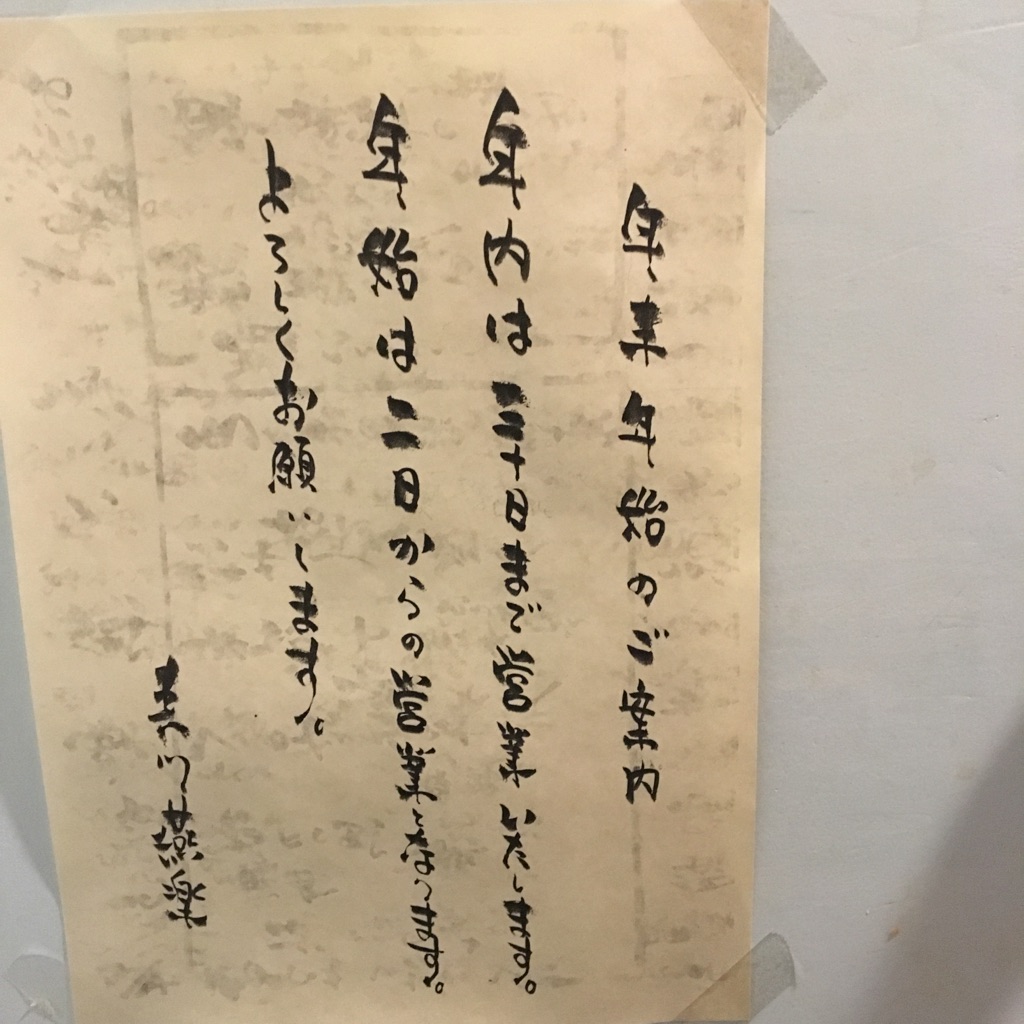 年末年始のご案内
年内は三十日まで営業いたします。
年始は二日からの営業になります。
よろしくお願いします。